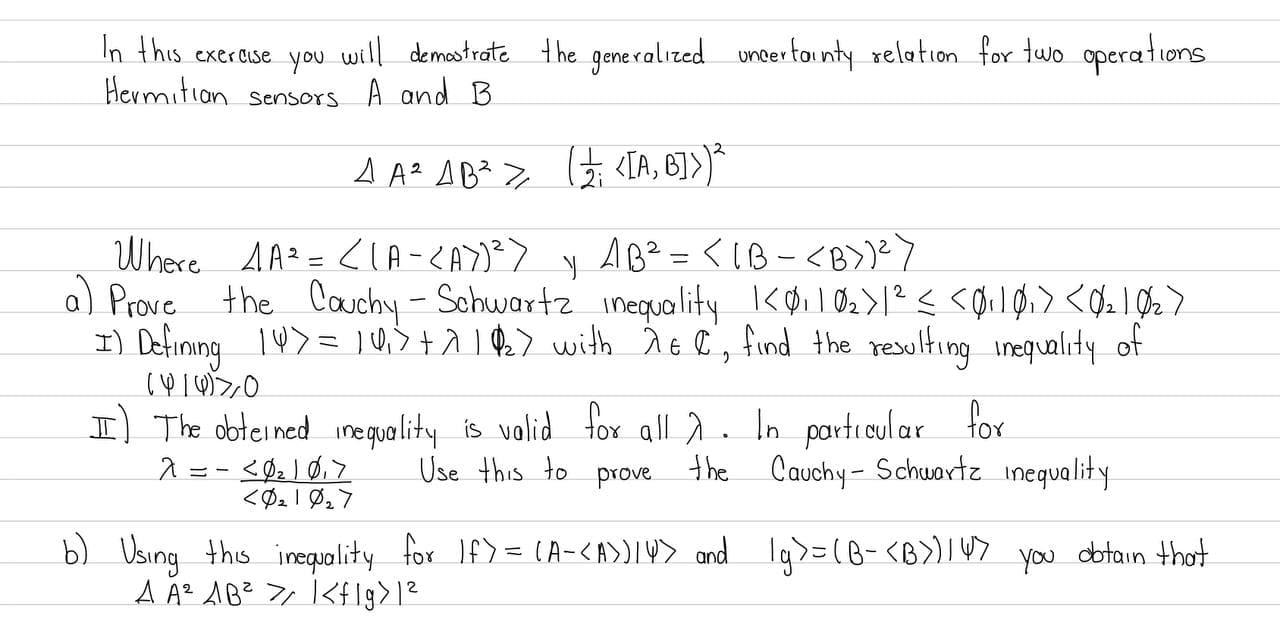 In this exercise you will demostrate the generalized uncertainty relation for two operations
Hermitian sensors A and B
Δ A² Δ B² ⩾ (1/2i <[A, B]>)²
Where ΔA² = <(A-<A>)²> y ΔB² = <(B-<B>)²>
a) Prove the Cauchy-Schwartz inequality |<Ø₁|Ø₂>|² ≤ <Ø₁|Ø₁> <Ø₂|Ø₂>
I) Defining |Ψ> = |φ₁> + λ|ϕ₂> with λ ∈ ℂ, find the resulting inequality of
(Ψ|Ψ)⩾0
II) The obteined inequality is valid for all λ. In particular for
λ = - <Ø₂|Ø₁>/<Ø₂|Ø₂> Use this to prove the Cauchy-Schwartz inequality
b) Using this inequality for |f> = (A-<A>)|Ψ> and |g>=(B-<B>)|Ψ> you obtain that
Δ A² ΔB² ⩾ |<f|g>|²